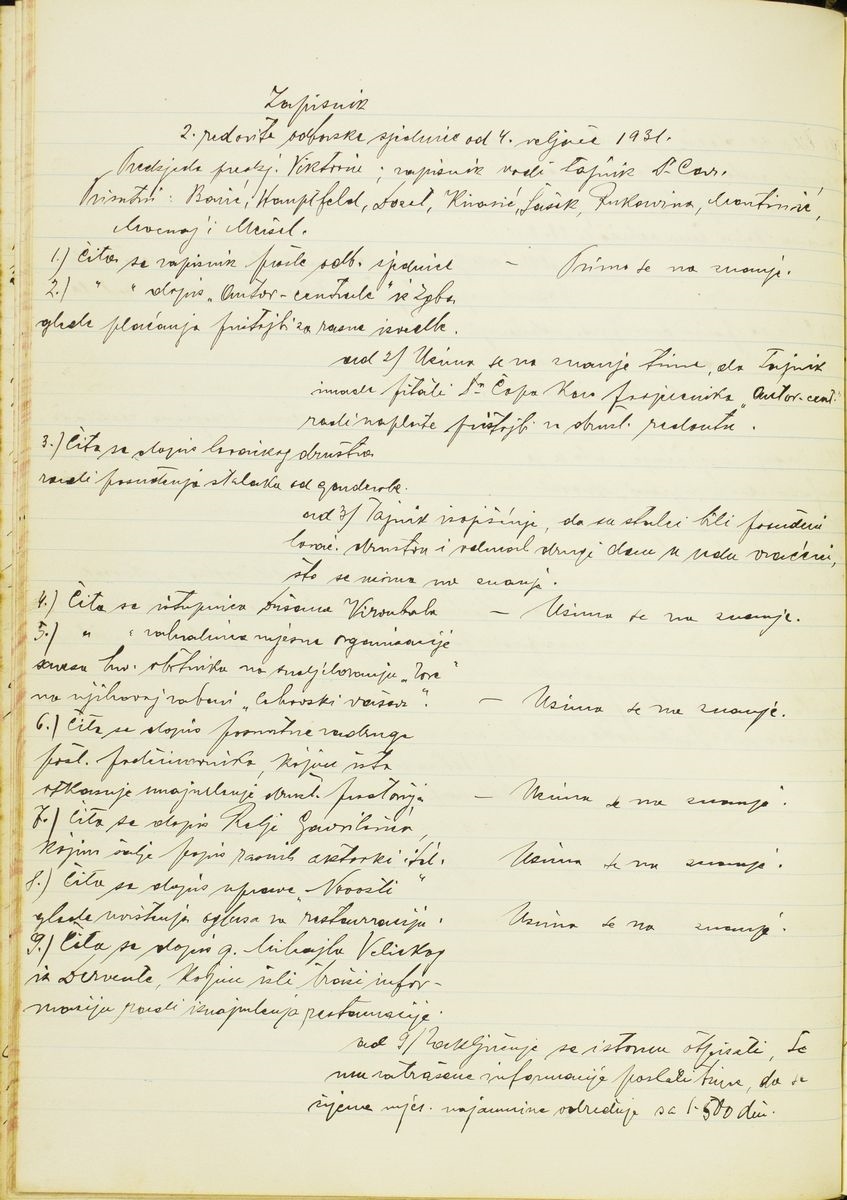 Zapisnik
2. redovite odborske sjednice od 4. veljače 1931.
Predsjeda predsj. Viktorin; zapisnik vodi tajnik Dr
Prisutni: Hauptfeld, Kirasić, Šašek, Rukavina, Martinić,
i Meisel.
1.) Čita se zapisnik prošle odb. sjednice — Prima se na znanje.
2.) " " dopis „Autor-centrale" iz Zgba.
glede plaćanja pristojbi za razne izvedbe.
ad 2/ Uzima se na znanje time, da tajnik
imade pitati Dr. Čapa kao „Autor-cent.
radi naplate pristojbi za društ. redoutu.
3.) Čita se dopis lovačkog društva
radi posuđenja stalaka od garderobe.
ad 3/ Tajnik izvješćuje, da su stalci bili posuđeni
lovač. društvu i odmah drugi dan u redu vraćeni,
što se uzima na znanje.
4.) Čita se istupnica Dušana — Uzima se na znanje.
5.) " " zahvalnica mjesne organizacije
saveza hrv. obrtnika na sudjelovanju „Zore"
na njihovoj zabavi „Cehovski vašar". — Uzima se na znanje.
6.) Čita se dopis zadruge
pošt. kojim ista
otkazuje iznajmljenje društ. prostorija — Uzima se na znanje.
7.) Čita se dopis Relje Gavrilovića,
kojim šalje popis raznih aktovki itd. Uzima se na znanje.
8.) Čita se dopis uprave „Novosti"
glede uvrštenja oglasa za restauraciju. Uzima se na znanje.
9.) Čita se dopis g. Mihajla Velickog
iz Dervente, kojim isti traži infor-
maciju radi iznajmljenja restauracije.
ad 9/ Zaključuje se istomu otpisati, te
mu zatražene informacije poslati time, da se
cijena mjes. najamnine određuje sa 1.500 din.